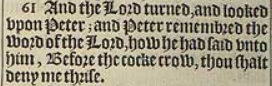 61 And the Lord turned, and looked
vpon Peter; and Peter remembred the
word of the Lord, how he had said vnto
him, Before the cocke crow, thou shalt
deny me thrise.